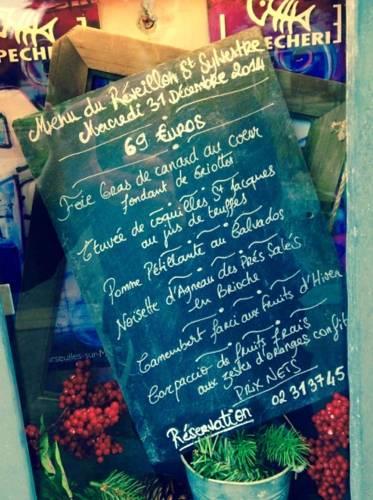 PECHERI
PECHERI
Menu du Réveillon St Sylvestre
Mercredi 31 Décembre 2014
69 Euros
Foie Gras de canard au coeur
fondant de Griottes
Etuvée de coquilles St Jacques
au jus de truffes
Pomme Pétillante au Calvados
Noisette d'Agneau des Prés Salés
en Brioche
Camembert farci aux fruits d'Hiver
Carpaccio de fruits frais
aux zestes d'oranges confit
PRIX NETS
Réservation 02 313745